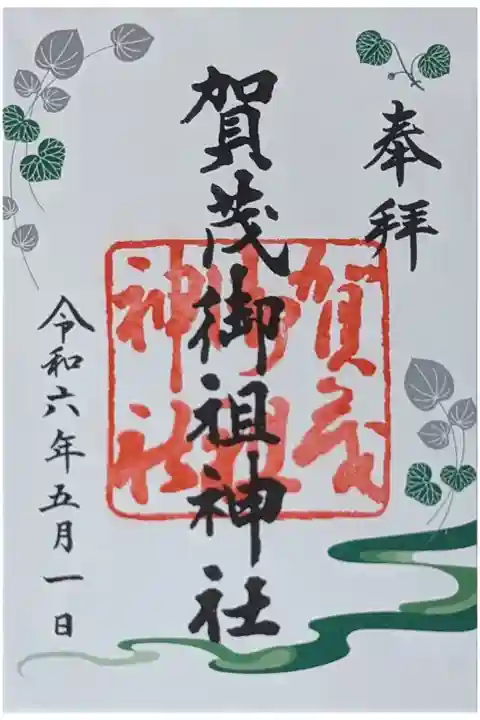 奉拝
賀茂御祖神社
賀茂
御祖
神社
令和六年五月一日